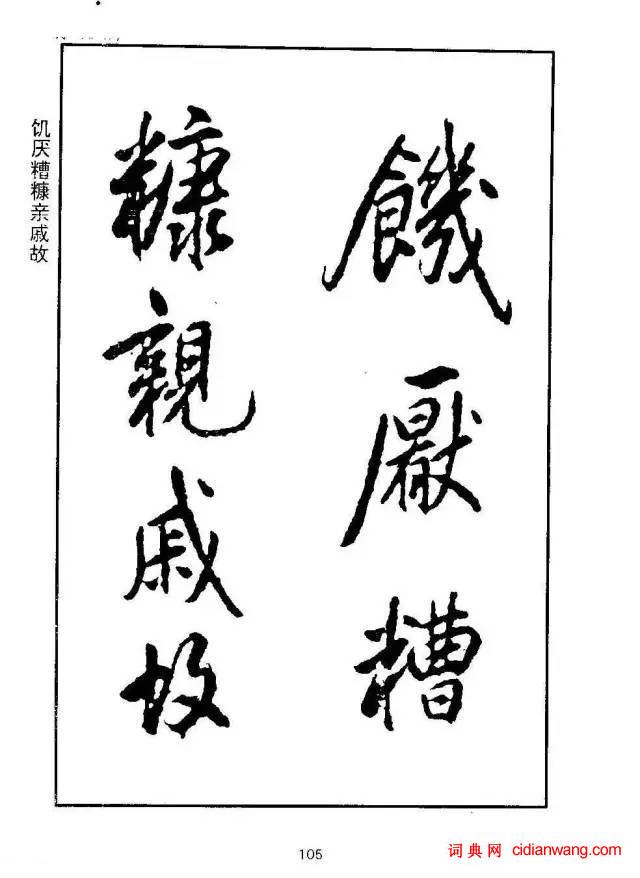 饥厌糟糠亲戚故
饑厭糟
糠親戚故
105
词典网 cidianwang.com